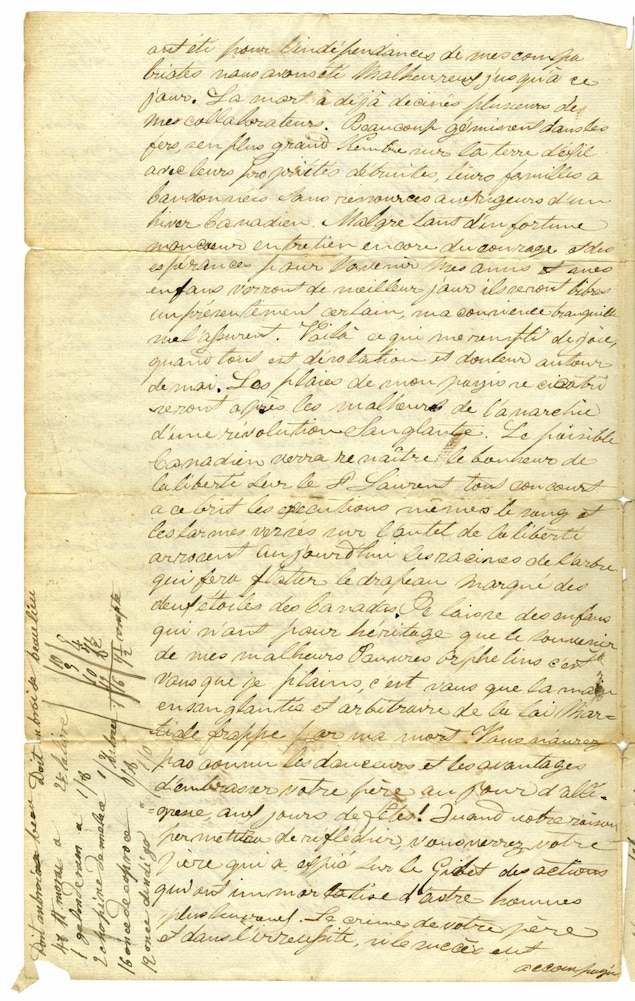 ont été pour l'indépendances de mes compa
triotes nous avons été Malheureux jusqu'à ce
jour. La mort à déjà décimés plusieurs des
mes collaborateurs. Beaucoup gémissent dans les
fers, en plus grand Nombre sur la terre d'éxil
avec leurs propriétés détruites, leurs familles a
bandonnées sans ressources aux rigeurs d'un
hiver Canadien. Malgré tant d'infortune
mon coeur entretien encore du courage et des
espérances pour l'avenir Mes amis et mes
enfans verront de meilleur jour ils seront libres
un présentiment certain, ma conscience tranquille
me l'assurent. Voilà ce qui me rempli de joie,
quand tout est désolation et douleur autour
de moi. Les plaies de mon pays se cicatri
seront après les malheurs de l'anarchie
d'une révolution Sanglante. Le paisible
Canadien verra renaître le bonheur de
la liberté sur le St Laurent tout concourt
a ce but les exécutions mêmes le sang et
les larmes versés sur l'autel de la liberté
arrosent aujourd'hui les racines de l'arbre
qui fera flotter le drapeau marqué des
deux étoiles des Canadas. Je laisse des enfans
qui n'ont pour héritage que le souvenir
de mes malheurs Pauvres orphelins c'est
vous que je plains, c'est vous que la main
ensanglantée et arbitraire de la loi Mar-
tiale frappe par ma mort. Vous n'aurez
pas connu les douceurs et les avantages
d'embrasser votre père au jour d'allé-
gresse, aux jours de fêtes! Quand votre raison
permettra de réfléchir, vous verrez votre
père qui a expié sur le Gibet des actions
qui ont immortalisé d'autre hommes
plus heureux. Le crime de votre père
est dans l'irréussite, si le succès eut
accompagné
Doit ambroise beau Doit ambroise beaulieu
1/8
16 once de
12 once d'indigo